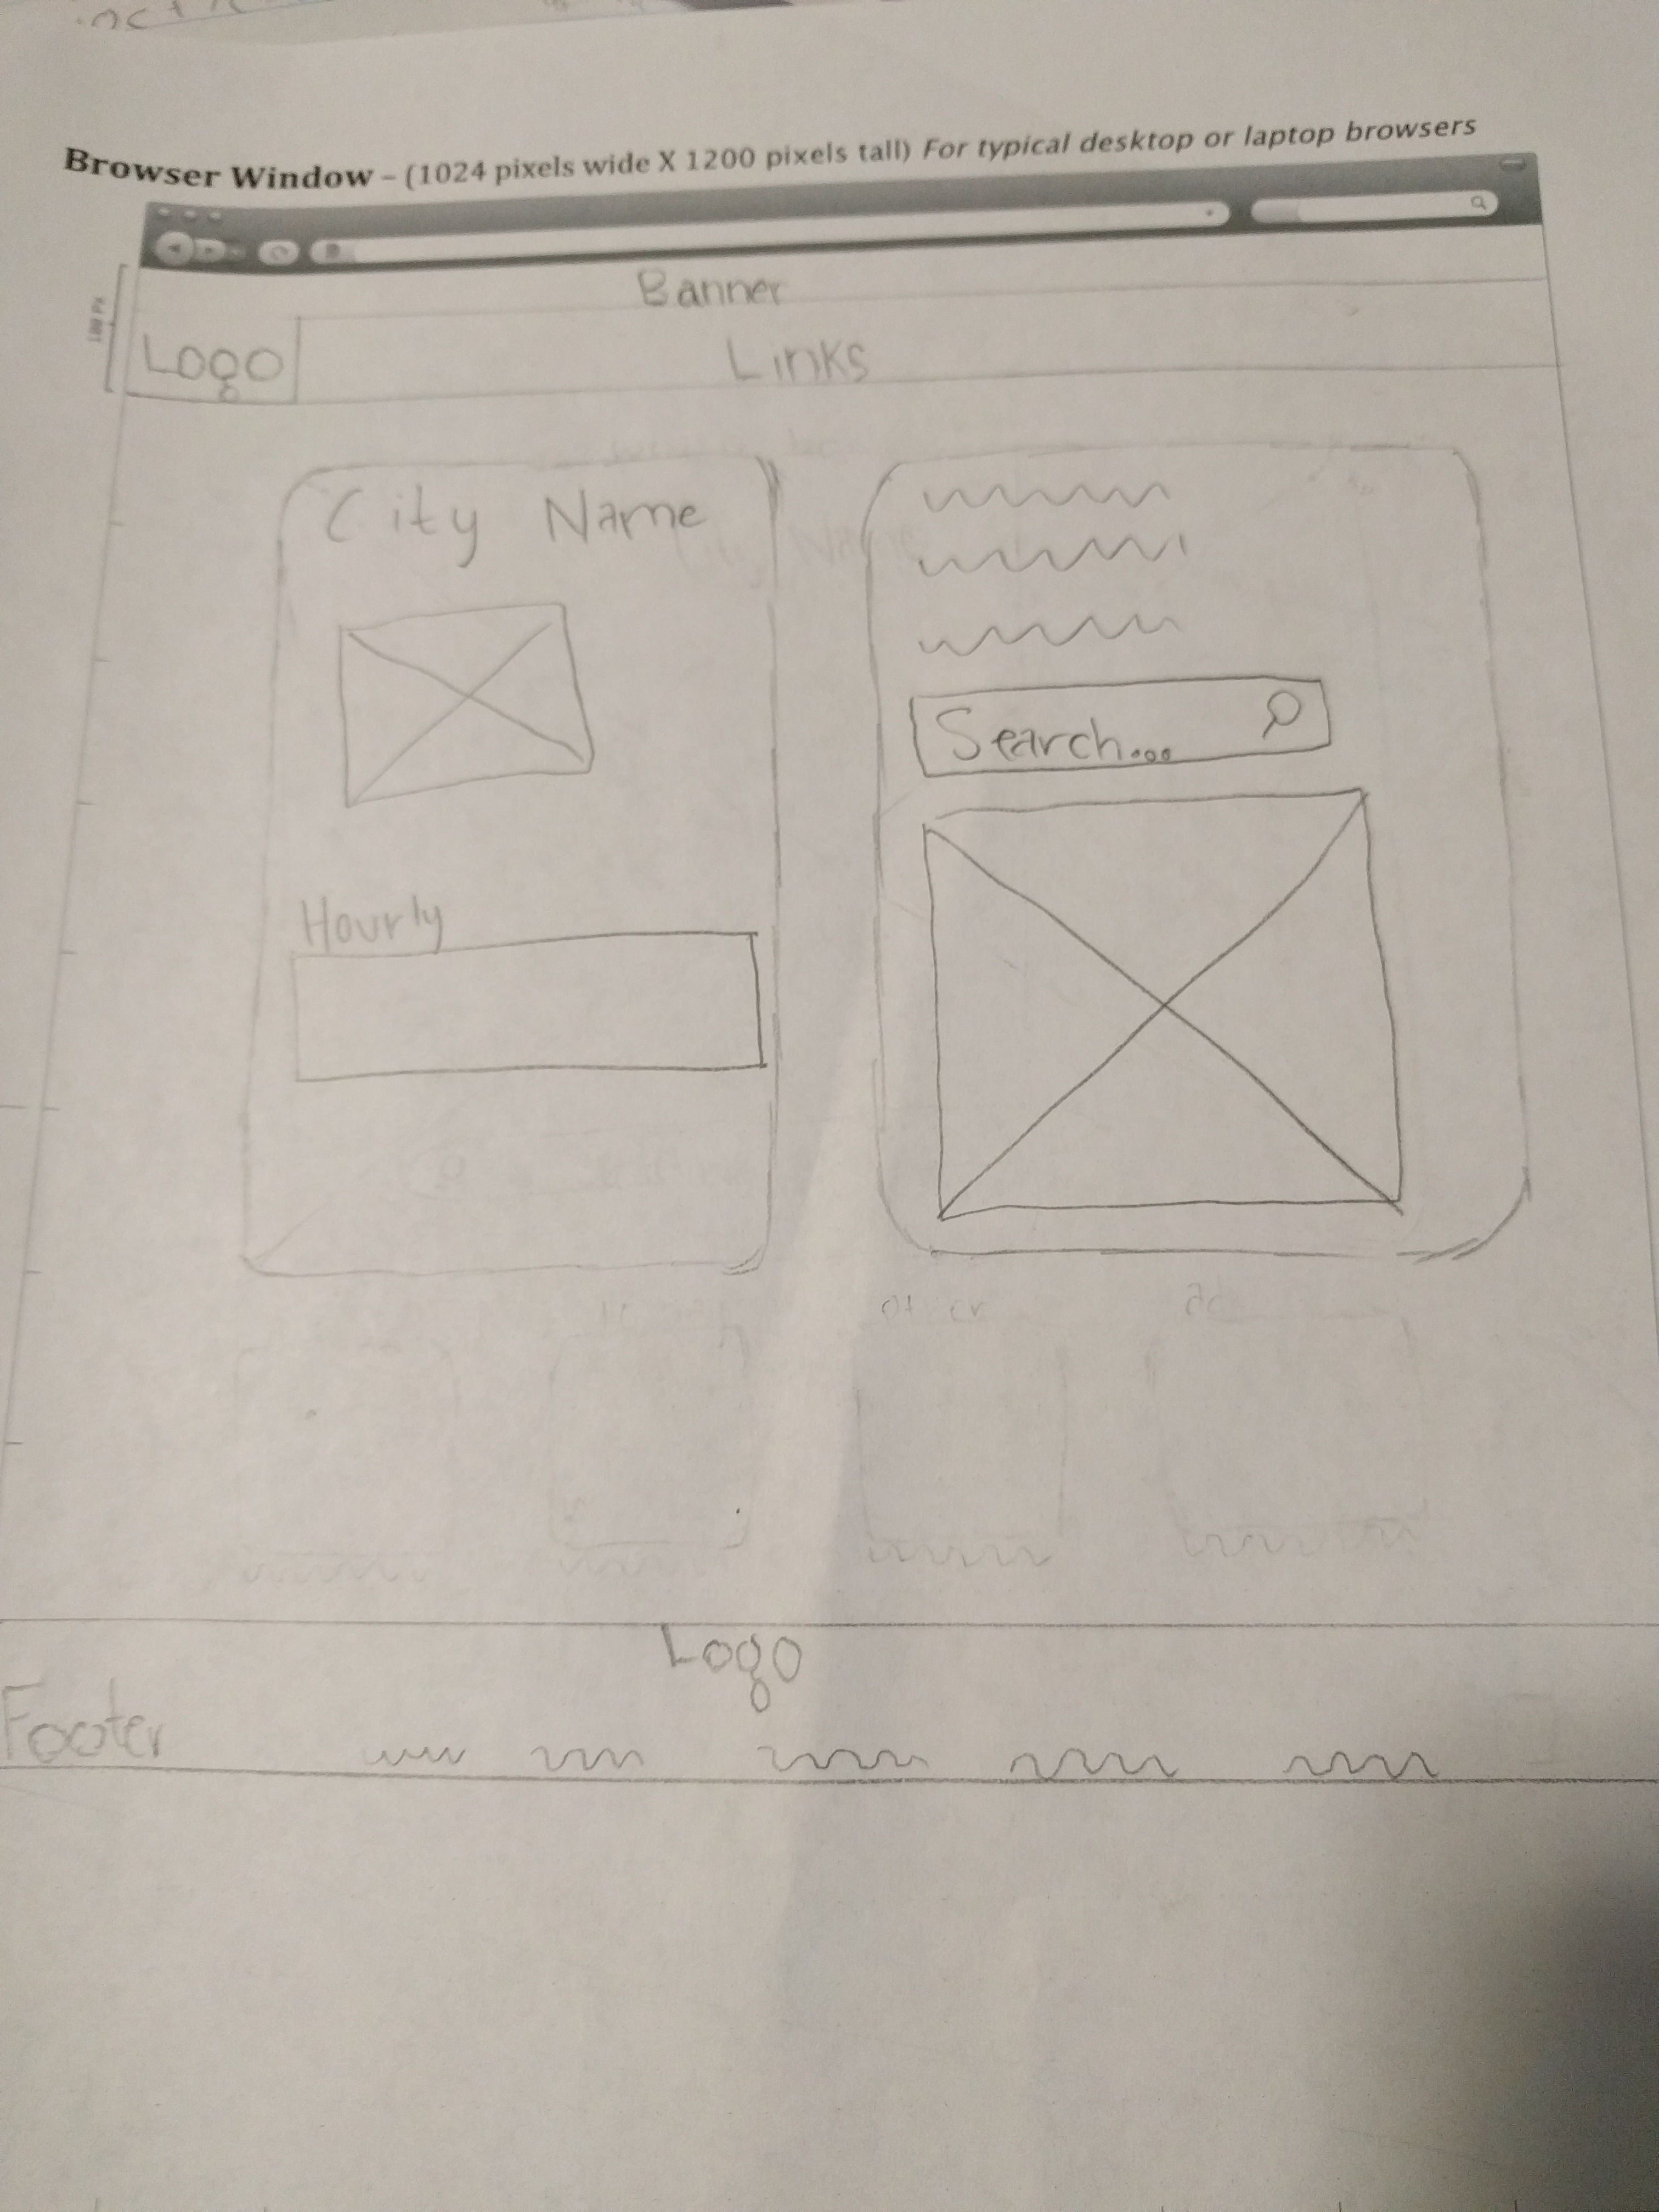 Browser Window – (1024 pixels wide X 1200 pixels tall) For typical desktop or laptop browsers
Banner
100 PX
Logo
Links
City Name
Search...
Hourly
Logo
Footer